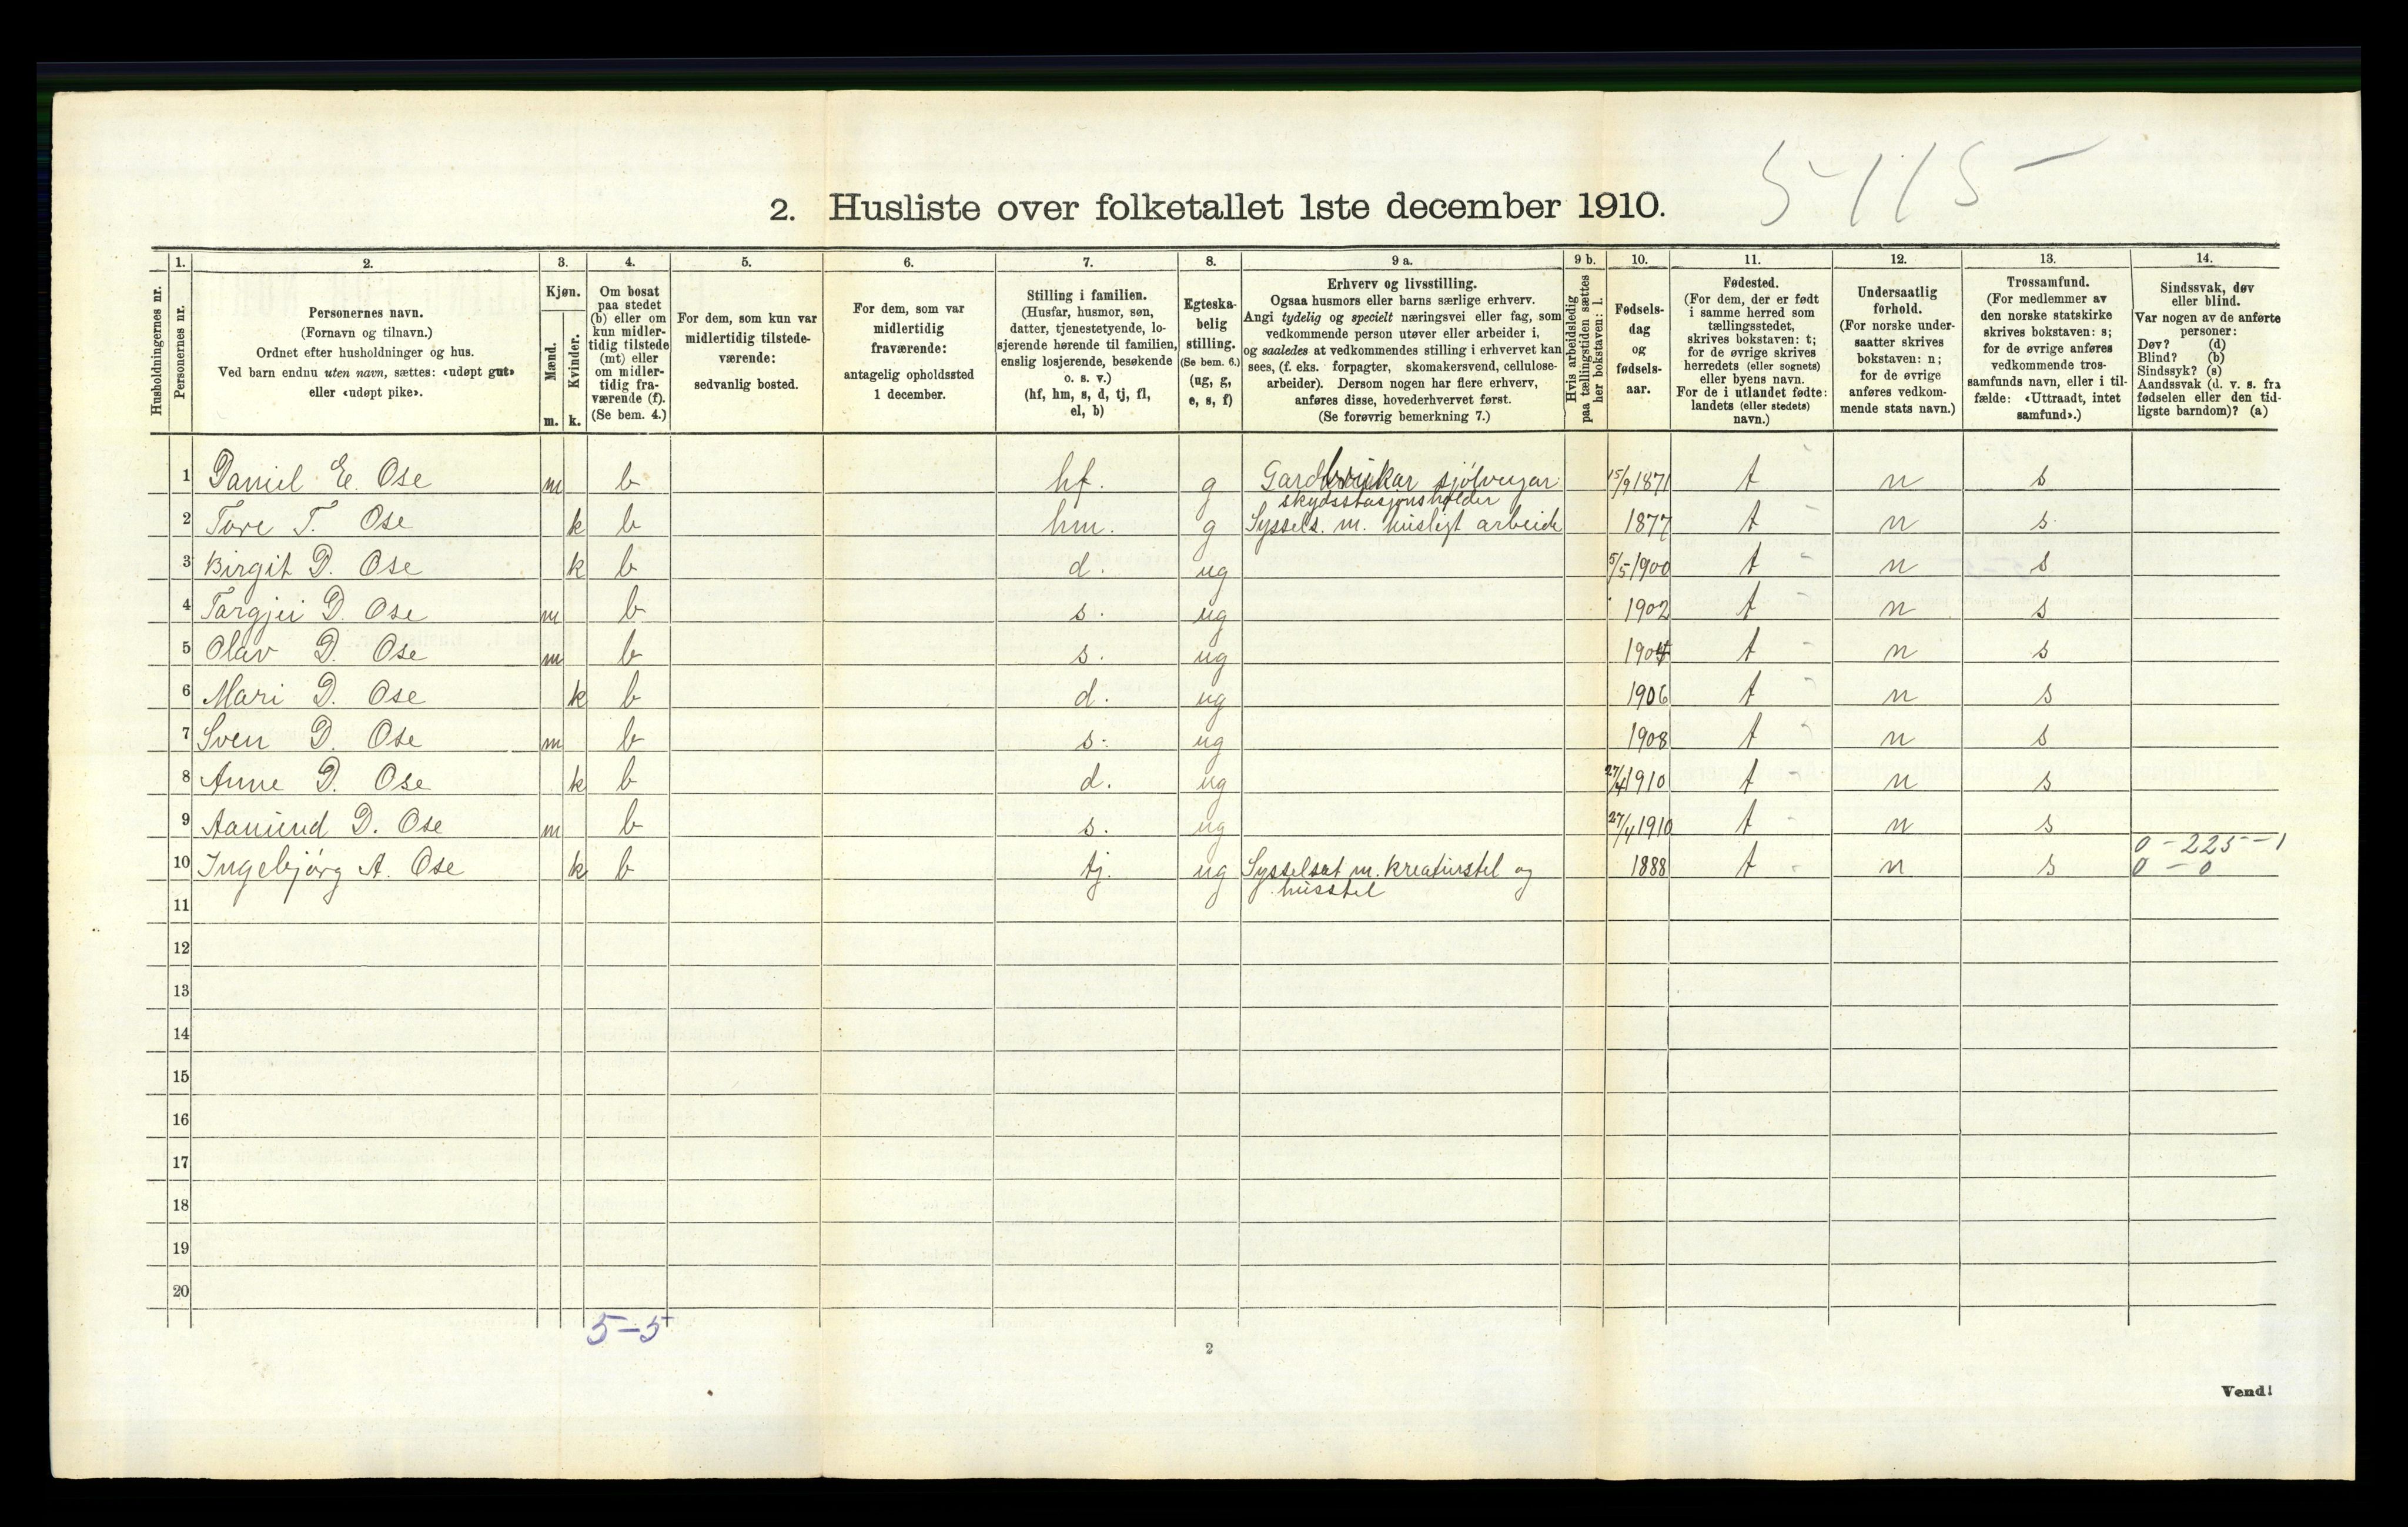 5115
2. Husliste over folketallet 1ste december 1910.
Husholdningernes nr.
1.
Personernes nr.
2.
Personernes navn.
(Fornavn og tilnavn.)
Ordnet efter husholdninger og hus.
Ved barn endnu uten navn, sættes: «udøpt gut»
eller «udøpt pike».
3.
Kjøn.
Mænd.
m.
Kvinder.
k.
4.
Om bosat
paa stedet
(b) eller om
kun midler-
tidig tilstede
(mt) eller
om midler-
tidig fra-
værende (f).
(Se bem. 4.)
5.
For dem, som kun var
midlertidig tilstede-
værende:
sedvanlig bosted.
6.
For dem, som var
midlertidig
fraværende:
antagelig opholdssted
1 december.
7.
Stilling i familien.
(Husfar, husmor, søn,
datter, tjenestetyende, lo-
sjerende hørende til familien,
enslig losjerende, besøkende
o. s. v.)
(hf, hm, s, d, tj, fl,
el, b)
8.
Egteska-
belig
stilling.
(Se bem. 6.)
(ug, g,
e, s, f)
9 a.
Erhverv og livsstilling.
Ogsaa husmors eller barns særlige erhverv.
Angi tydelig og specielt næringsvei eller fag, som
vedkommende person utøver eller arbeider i,
og saaledes at vedkommendes stilling i erhvervet kan
sees, (f. eks. forpagter, skomakersvend, cellulose-
arbeider). Dersom nogen har flere erhverv,
anføres disse, hovederhvervet først.
(Se forøvrig bemerkning 7.)
9 b.
Hvis arbeidsledig
paa tællingstiden sættes
her bokstaven: l.
10.
Fødsels-
dag
og
fødsels-
aar.
11.
Fødested.
(For dem, der er født
i samme herred som
tællingsstedet,
skrives bokstaven: t;
for de øvrige skrives
herredets (eller sognets)
eller byens navn.
For de i utlandet fødte:
landets (eller stedets)
navn.)
12.
Undersaatlig
forhold.
(For norske under-
saatter skrives
bokstaven: n;
for de øvrige
anføres vedkom-
mende stats navn.)
13.
Trossamfund.
(For medlemmer av
den norske statskirke
skrives bokstaven: s;
for de øvrige anføres
vedkommende tros-
samfunds navn, eller i til-
fælde: «Uttraadt, intet
samfund».)
14.
Sindssvak, døv
eller blind.
Var nogen av de anførte
personer:
Døv? (d)
Blind? (b)
Sindssyk? (s)
Aandssvak (d. v. s. fra
fødselen eller den tid-
ligste barndom)? (a)
1 Daniel E. Ose m b hf. g Gardbrukar sjølveigar 15/9 1871 t n s
skydsstasjonsholder
2 Tore T. Ose k b hm. g Syssels. m. husligt arbeide 1877 t n s
3 Birgit D. Ose k b d. ug 5/5 1900 t n s
4 Targjei D. Ose m b s. ug 1902 t n s
5 Olav D. Ose m b s. ug 1904 t n s
6 Mari D. Ose k b d. ug 1906 t n s
7 Sven D. Ose m b s. ug 1908 t n s
8 Anne D. Ose k b d. ug 27/4 1910 t n s
9 Aamund D. Ose m b s. ug 27/4 1910 t n s
0 - 225 - 1
10 Ingebjørg A. Ose k b tj. ug Sysselsat m. kreaturstel og 1888 t n s 0 - 0
husstel
11
12
13
14
15
16
17
18
19
20
5-5
2
Vend!